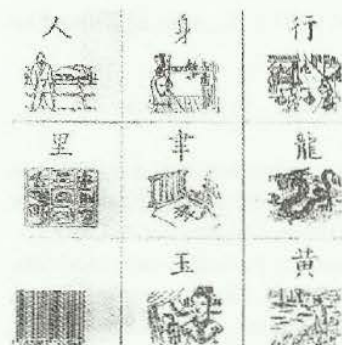 人 身 行
里 聿 龍
玉 黄